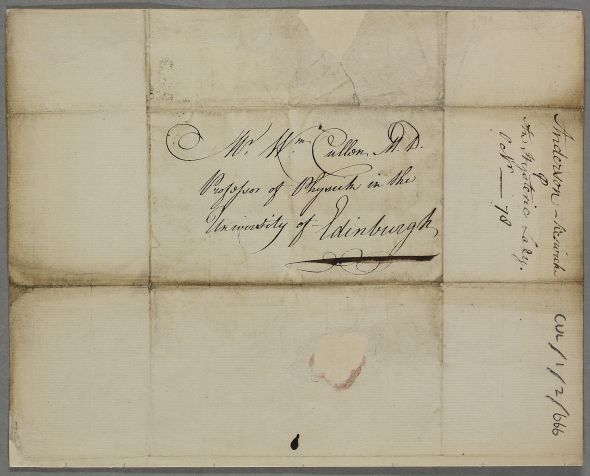 Mr Wm Cullen, M.D.
Professor of Physick in the
University of Edinburgh
Anderson
An Hysteric Lady.
78
CUL/1/2/666